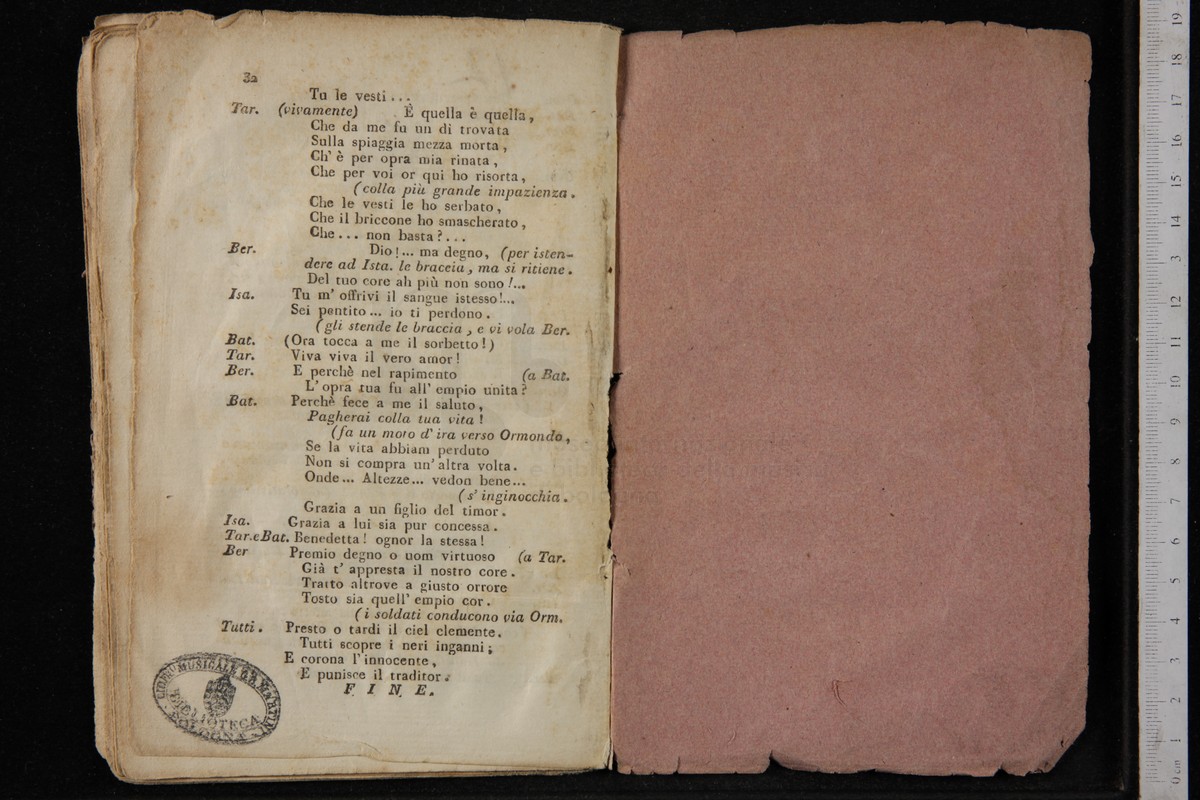 32
Tu le vesti...
Tar. (vivamente) È quella è quella,
Che da me fu un di trovata
Sulla spiaggia mezza morta,
Ch' è per opra mia rinata,
Che per voi or qui ho risorta,
(colla più grande impazienza.
Che le vesti le ho serbato,
Che il briccone ho smascherato,
Che... non basta?...
Ber. Dio!... ma degno, (per isten-
dere ad Ista. le braccia, ma si ritiene.
Del tuo core ah più non sono!...
Isa. Tu m' offrivi il sangue istesso!...
Sei pentito... io ti perdono.
(gli stende le braccia, e vi vola Ber.
Bat. (Ora tocca a me il sorbetto!)
Tar. Viva viva il vero amor!
Ber. E perchè nel rapimento (a Bat.
L' opra tua fu all' empio unita?
Bat. Perchè fece a me il saluto,
Pagherai colla tua vita!
(fa un moto d' ira verso Ormondo,
Se la vita abbiam perduto
Non si compra un' altra volta.
Onde... Altezze... vedon bene...
(s' inginocchia.
Grazia a un figlio del timor.
Isa. Grazia a lui sia pur concessa.
Tar.eBat. Benedetta! ognor la stessa!
Ber Premio degno o uom virtuoso (a Tar.
Già t' appresta il nostro core.
Tratto altrove a giusto orrore
Tosto sia quell' empio cor.
(i soldati conducono via Orm.
Tutti. Presto o tardi il ciel clemente.
Tutti scopre i neri inganni;
E corona l' innocente,
E punisce il traditor.
FINE.
LICEO MUSICALE G.B. MARTINI
BIBLIOTECA
BOLOGNA
0 cm 1 2 3 4 5 6 7 8 9 10 11 12 13 14 15 16 17 18 19